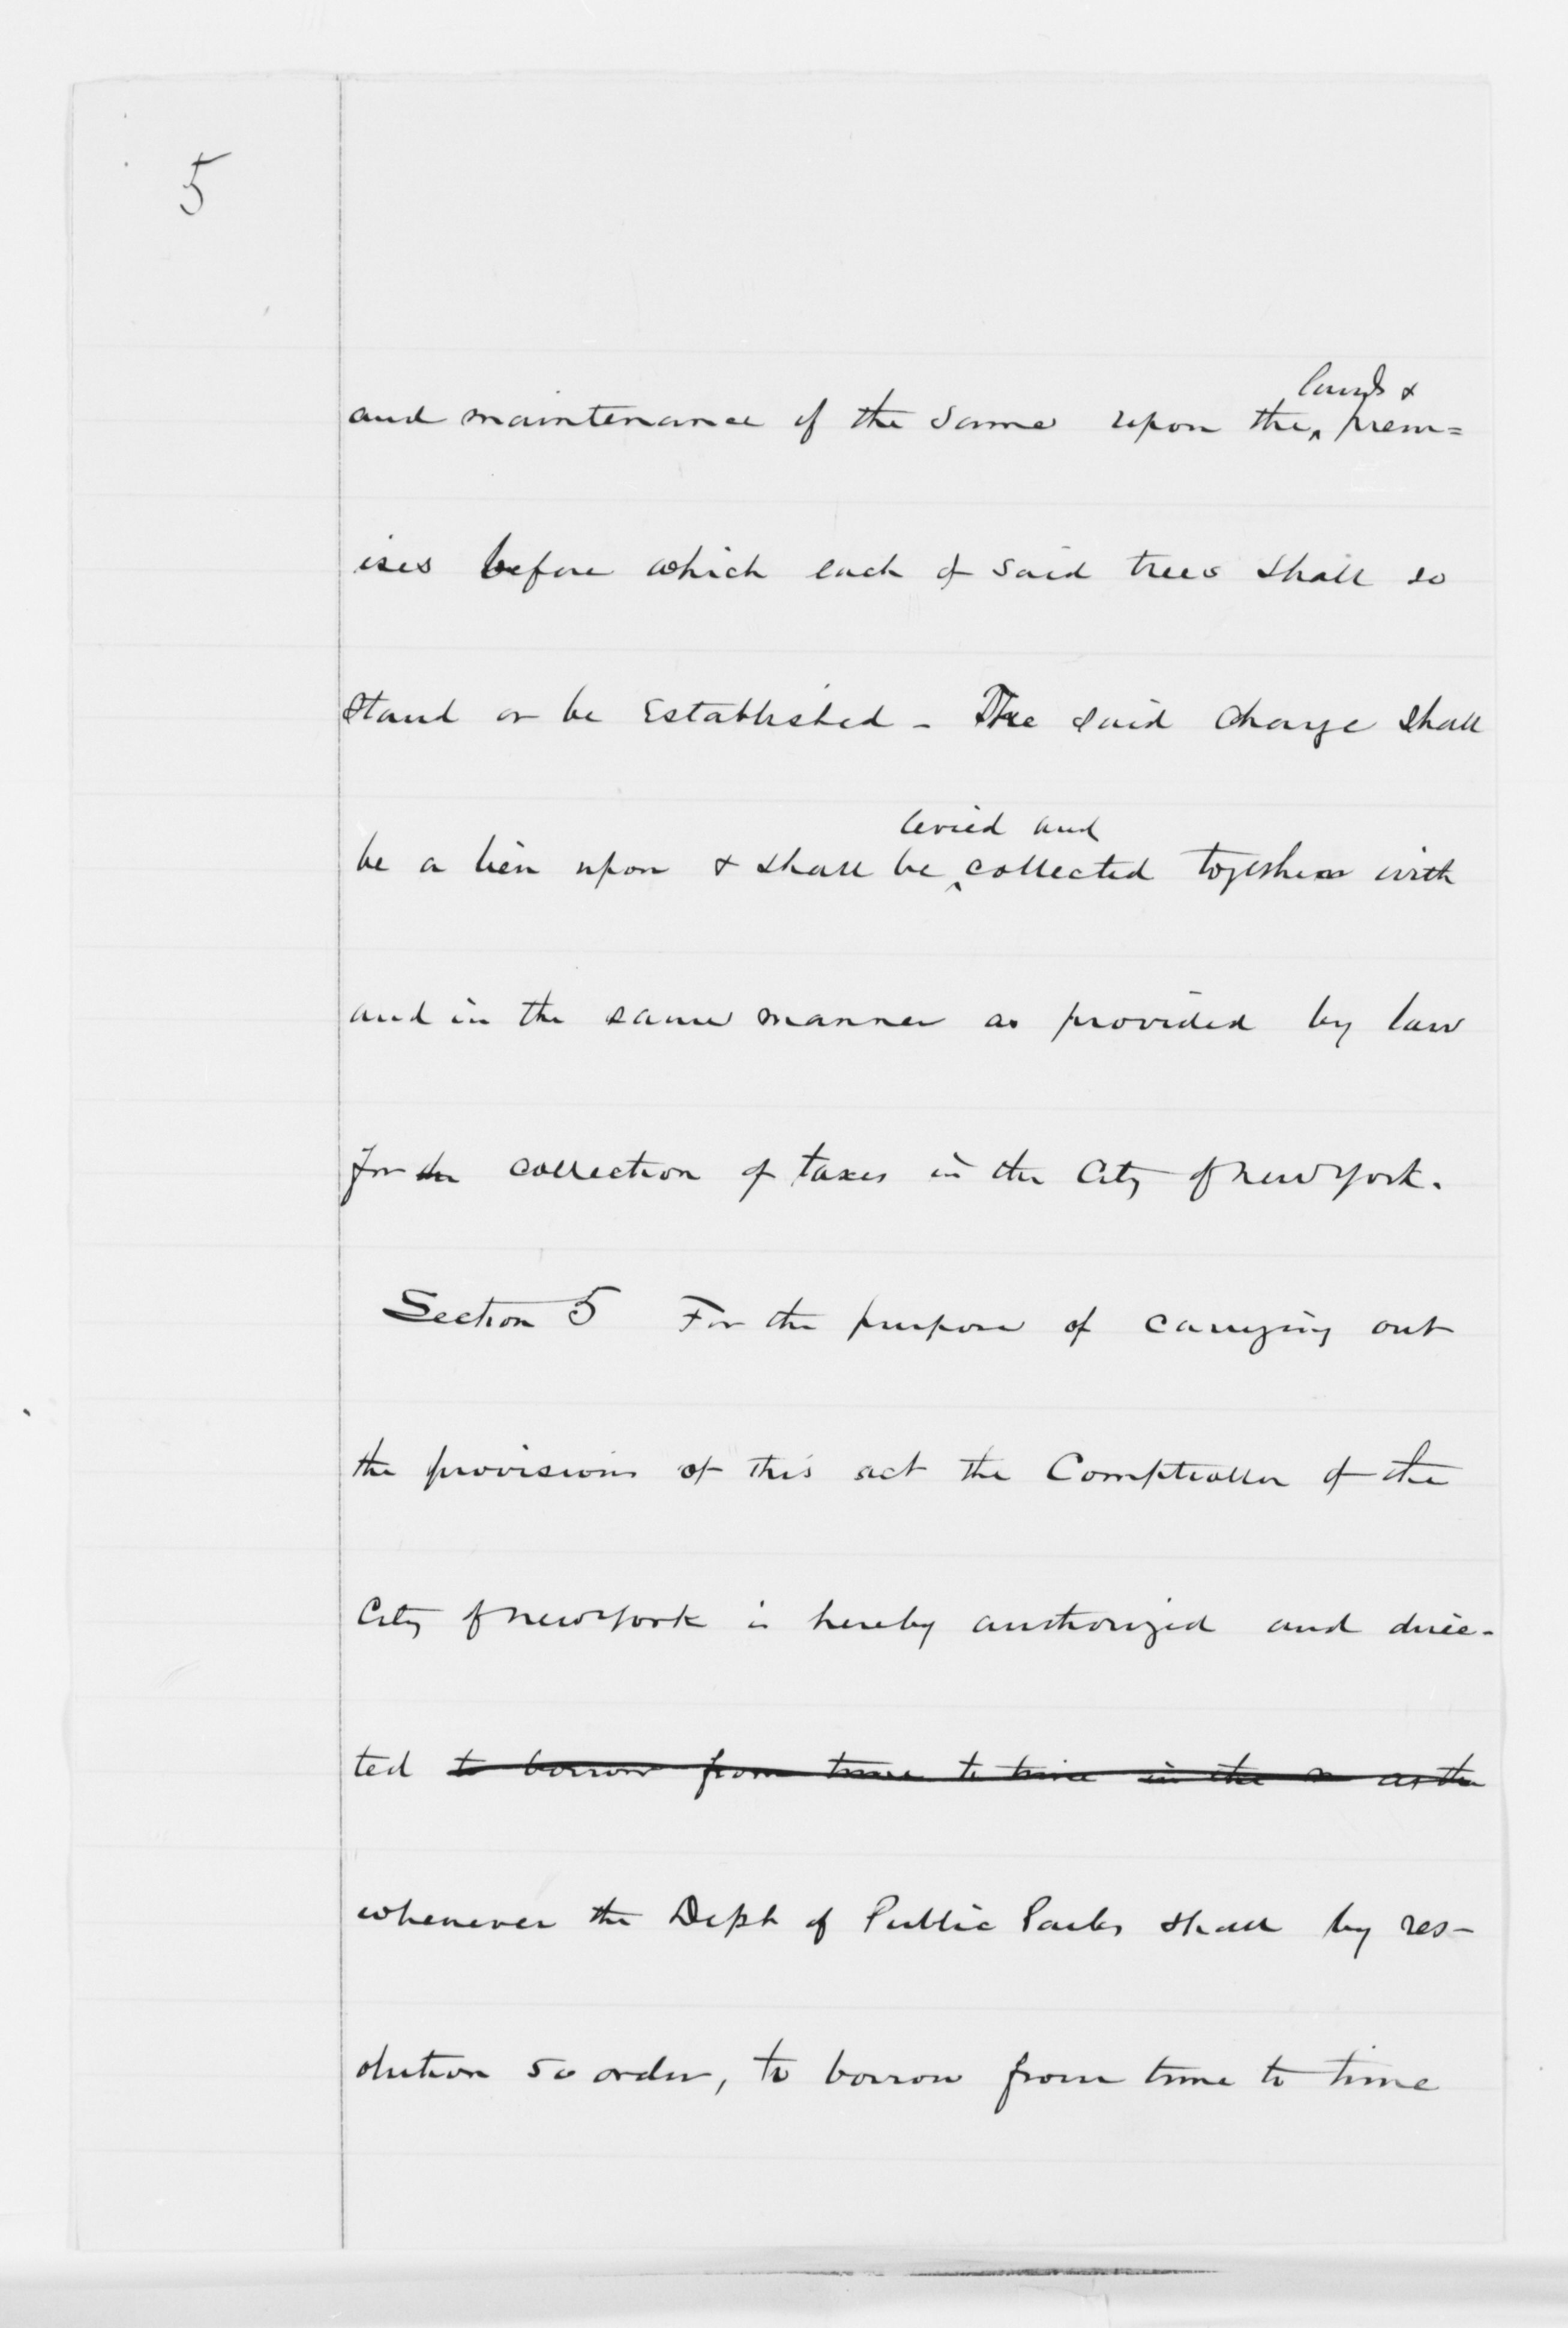 5
lands &
and maintenance of the same upon the ^ prem=
ises before which each of said trees shall so
stand or be established - The said charge shall
levied and
be a lien upon & shall be ^ collected together with
and in the same manner as provided by law
for the collection of taxes in the City of New York.
Section 5 For the purpose of carrying out
the provisions of this act the Comptroller of the
City of New York is hereby authorized and direc-
ted to borrow from time to time in the m as the
whenever the Dept of Public Parks shall by res-
olution so order, to borrow from time to time